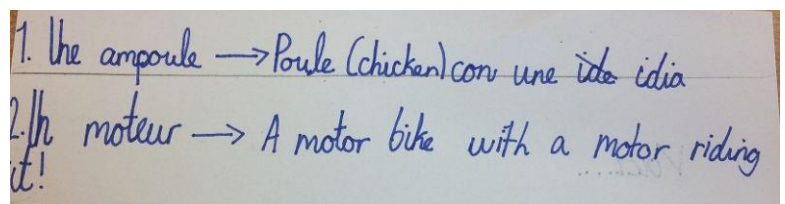 1. Une ampoule → Poule (chicken) con une ide idia
2. Un moteur → A motor bike with a motor riding
it!